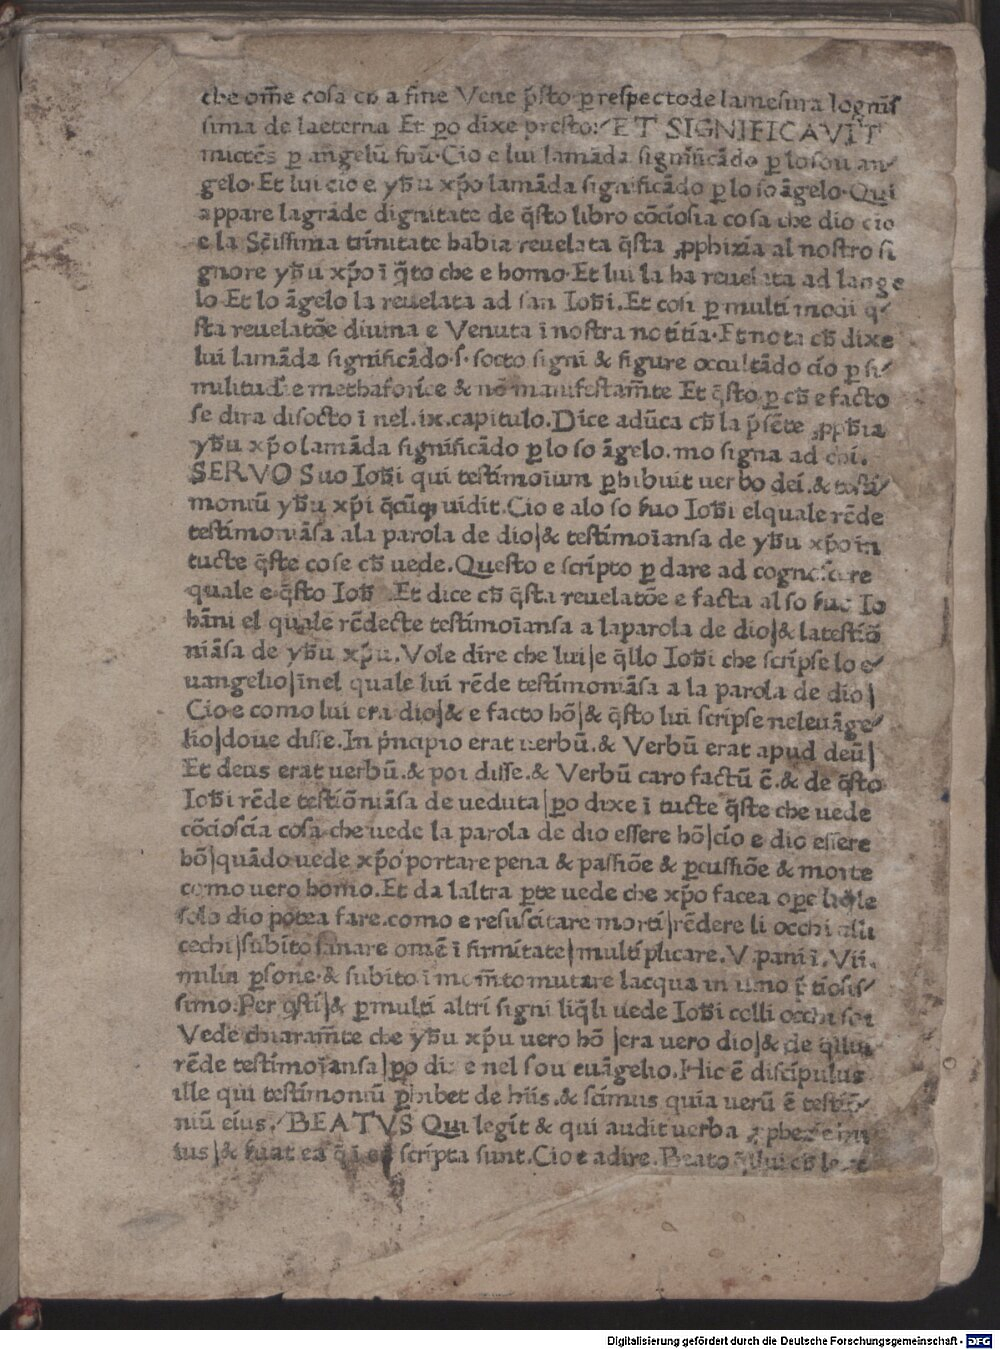 che om̃e cosa cħ a fine Vene p̃sto ꝑ respecto de la mesura longnis
sima de la eterna Et ꝑo dixe presto: ET SIGNIFICAVIT
mictẽs ꝑ angelũ suũ. Cio e lui lamãda significãdo ꝑ lo sou an⸗
gelo. Et lui cio e yħu xp̃o lamãda significãdo ꝑ lo so ãgelo. Qui
appare la grãde dignitate de q̃sto libro cõciosia cosa che dio cio
e la Sc̃issima trinitate habia reuelata q̃sta ꝓphizia al nostro si
gnore yħu xp̃o ĩ q̃to che e homo. Et lui la ha reuelata ad lange
lo Et lo ãgelo la reuelata ad san Ioħi. Et cosi ꝑ multi modi q̃⸗
sta reuelatõe diuina e Venuta ĩ nostra notitia. Et nota cħ dixe
lui lamãda significãdo .s. socto signi & figure occultãdo cio ꝑ si⸗
militudĩe methaforice & nõ manifestam̃te Et q̃sto ꝑ cħ e facto
se dira disocto ĩ nel .ix. capitulo. Dice adũca cħ la p̃sẽte ꝓpħia
yħu xp̃o lamãda significãdo ꝑ lo so ãgelo. mo signa ad chi.
SERVO Suo Ioħi qui testimoĩum ꝑhibuit uerbo dei. & testi⸗
moniũ yħu xp̃i q̃cũqꝫ uidit. Cio e alo so suo Ioħi el quale rẽde
testimoniãsa ala parola de dio|& testimoĩansa de yħu xp̃o in
tucte q̃ste cose cħ uede. Questo e scripto ꝑ dare ad cognoscere
quale e q̃sto Ioħ . Et dice cħ q̃sta reuelatõe e facta al so suo Io
hãni el quale rẽdecte testimoĩansa a la parola de dio|& la testiõ
niãsa de yħu xp̃u. Vole dire che lui|e q̃llo Ioħi che scripse lo e⸗
uangelio|ĩnel quale lui rẽde testimoniãsa a la parola de dio|
Cio e como lui era dio|& e facto hõ|& q̃sto lui scripse nel euãge⸗
lio|doue disse. In p̃ncipio erat uerbũ. & Verbũ erat apud deũ|
Et deus erat uerbũ. & poi disse. & Verbũ caro factũ ẽ. & de q̃sto
Ioħi rẽde testiõniãsa de ueduta|ꝑo dixe ĩ tucte q̃ste che uede
cõcioscia cosa che uede la parola de dio essere hõ|cio e dio essere
hõ|quãdo uede xp̃o portare pena & passiõe & ꝑcussiõe & morte
como uero homo. Et da laltra ꝑte uede che xp̃o facea oꝑe le q̃le
solo dio potea fare. como e resuscitare morti|rẽdere li occhi alli
cechi|subito sanare omẽ ĩ firmitate|multiplicare .V. pani ĩ .Vii.
milia ꝑsone. & subito ĩ mom̃to mutare lacqua in uino
simo. Per q̃sti|& ꝑ multi altri signi liq̃li uede Ioħi colli occhi soi
Vede chiaram̃te che yħu xp̃u uero hõ |era uero dio|& de q̃llui
rẽde testimoĩansa|ꝑo dixe nel sou euãgelio. Hic ẽ discipulus
ille qui testimoniũ ꝑhibet de hiis. & scimus quia uerũ ẽ testiõ⸗
niũ eius. BEATVS Qui legit & qui audit uerba
ius|& ẽa q̃ ĩ scripta sunt. Cio e a dire. Beato q̃llui cħ
Digitalisierung gefördert durch die Deutsche Forschungsgemeinschaft - DFG